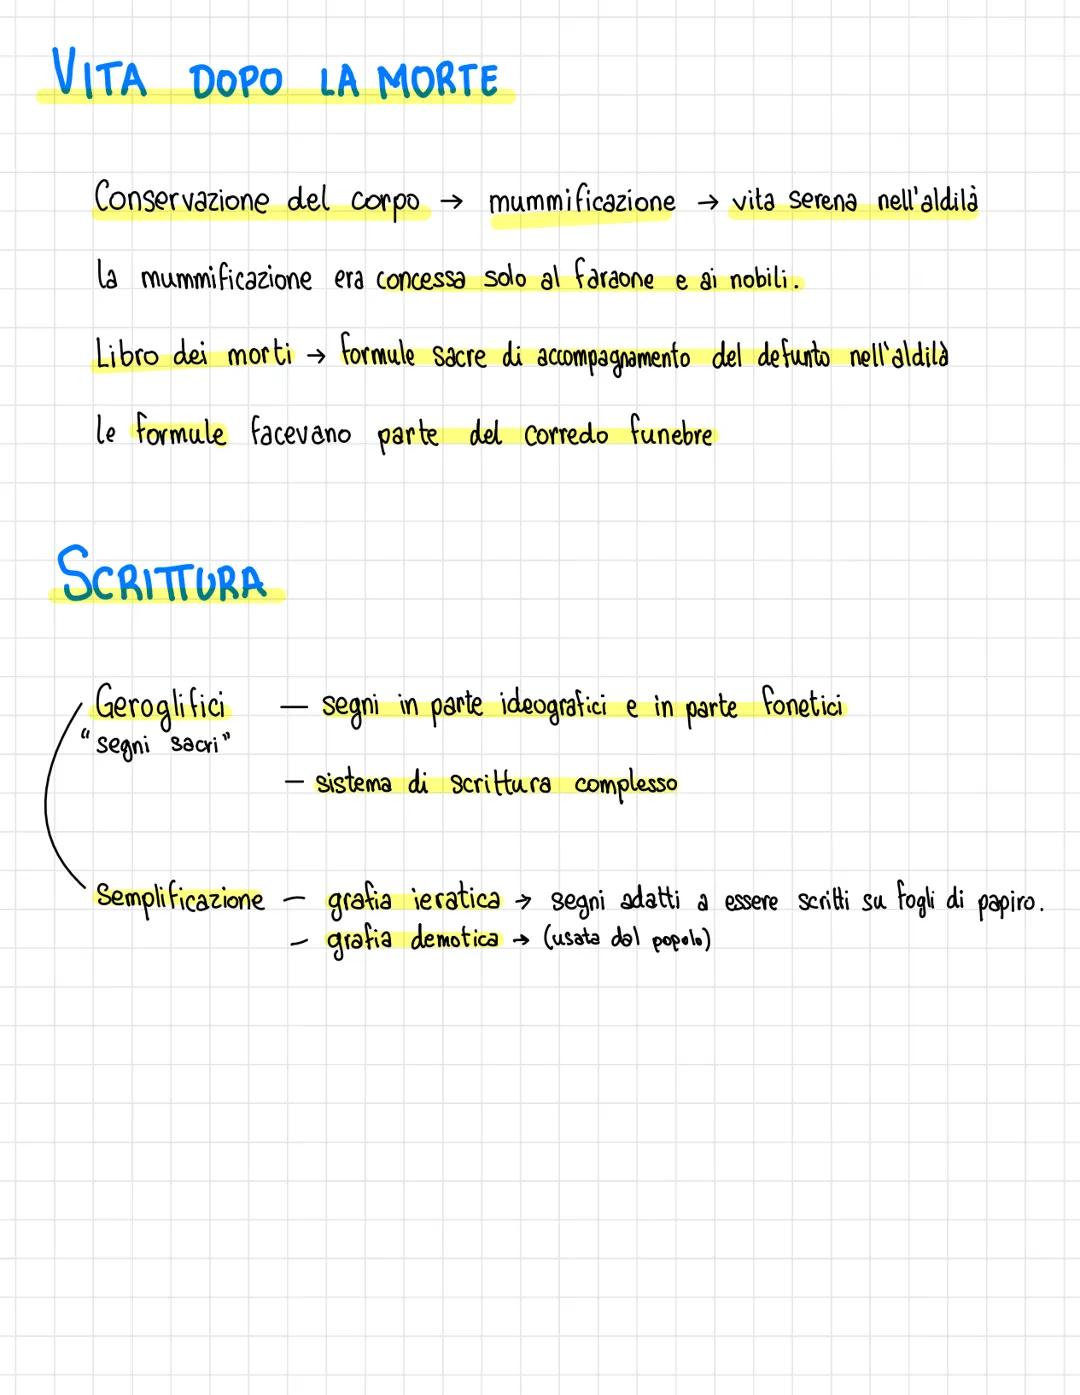 VITA DOPO LA MORTE
Conservazione del corpo → mummificazione → vita serena nell'aldilà
la mummificazione era concessa solo al faraone e ai nobili.
Libro dei morti → formule sacre di accompagnamento del defunto nell'aldilà
le formule facevano parte del corredo funebre
SCRITTURA
Geroglifici — segni in parte ideografici e in parte fonetici
"segni sacri"
— sistema di scrittura complesso
Semplificazione — grafia ieratica → segni adatti a essere scritti su fogli di papiro.
— grafia demotica → (usata dal popolo)